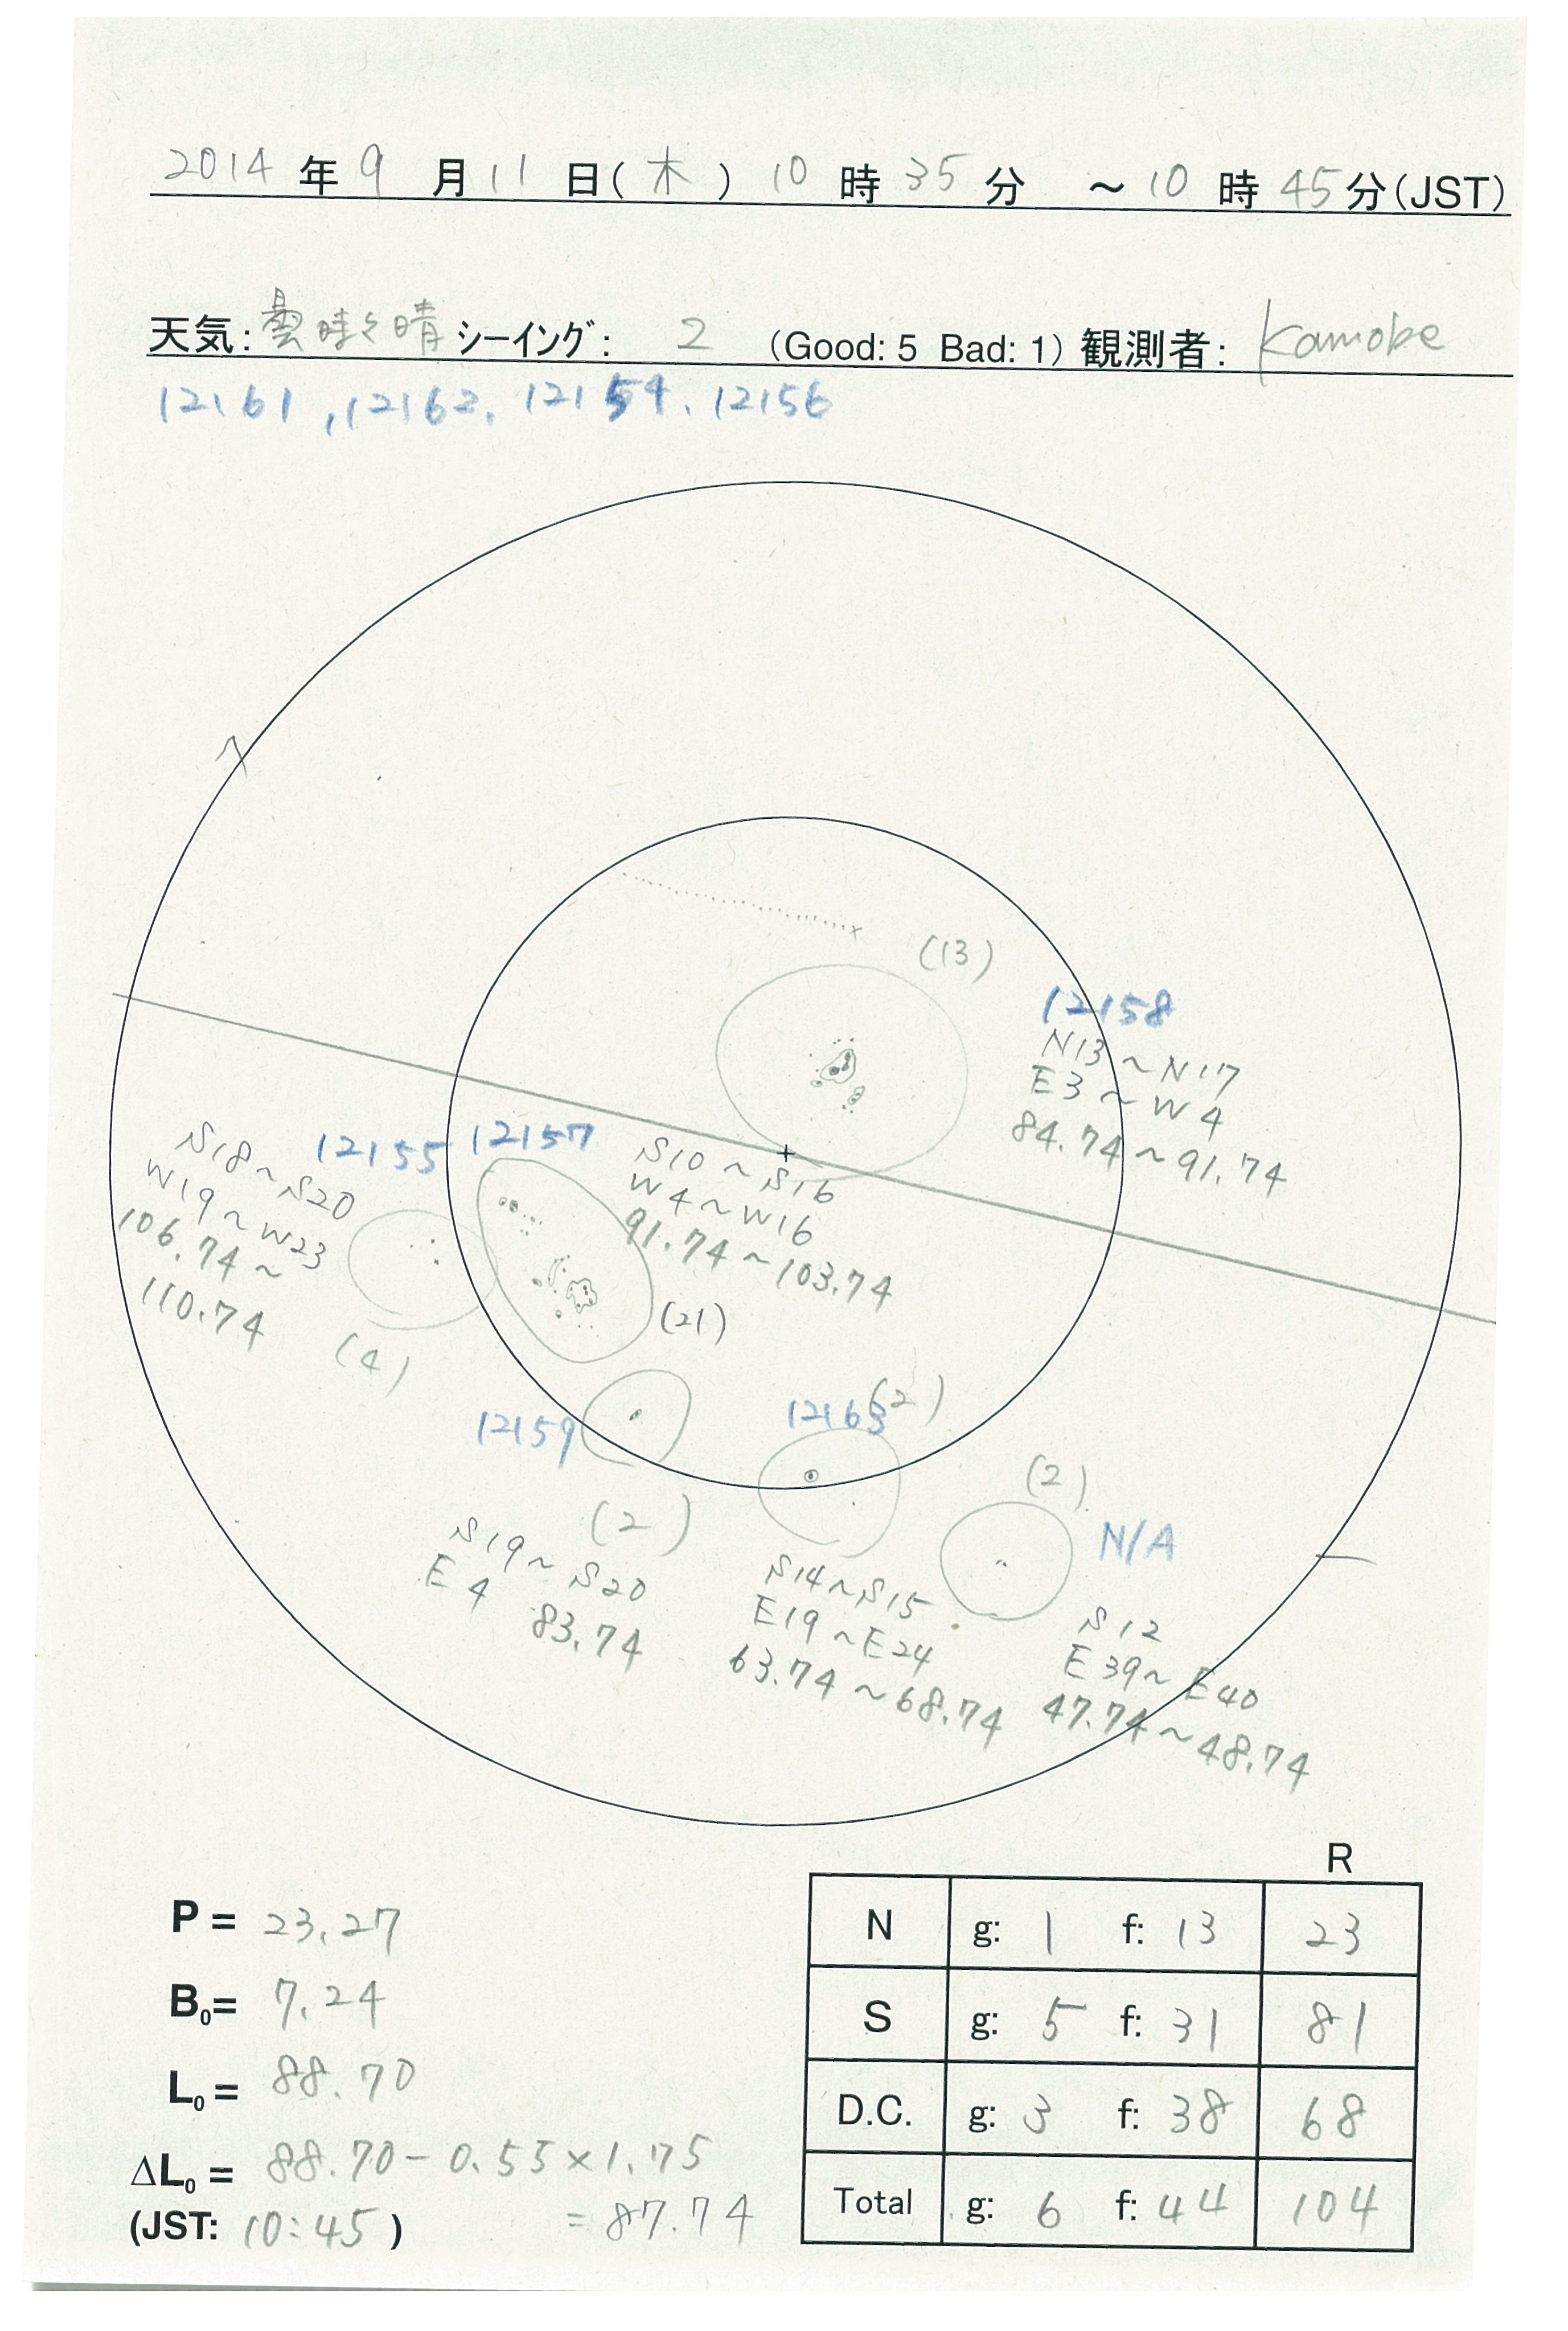 2014年9月11日(木) 10時35分 ～10時45分(JST)
天気:曇時々晴 シーイング: 2 (Good: 5 Bad: 1) 観測者: Kamobe
12161, 12162, 12154, 12156
(13)
12158
N13～N17
E3～W4
84.74～91.74
12155
S18～S20
W19～W23
106.74～
110.74
(4)
12157
S10～S16
W4～W16
91.74～103.74
(21)
12159
(2)
S19～S20
E4 83.74
12163
(2)
S14～S15
E19～E24
63.74～68.74
(2)
N/A
S12
E39～E40
47.74～48.74
P = 23.27
B0= 7.24
L0 = 88.70
ΔL0 = 88.70-0.55×1.75
(JST: 10:45) = 87.74
R
N g: 1 f: 13 23
S g: 5 f: 31 81
D.C. g: 3 f: 38 68
Total g: 6 f: 44 104